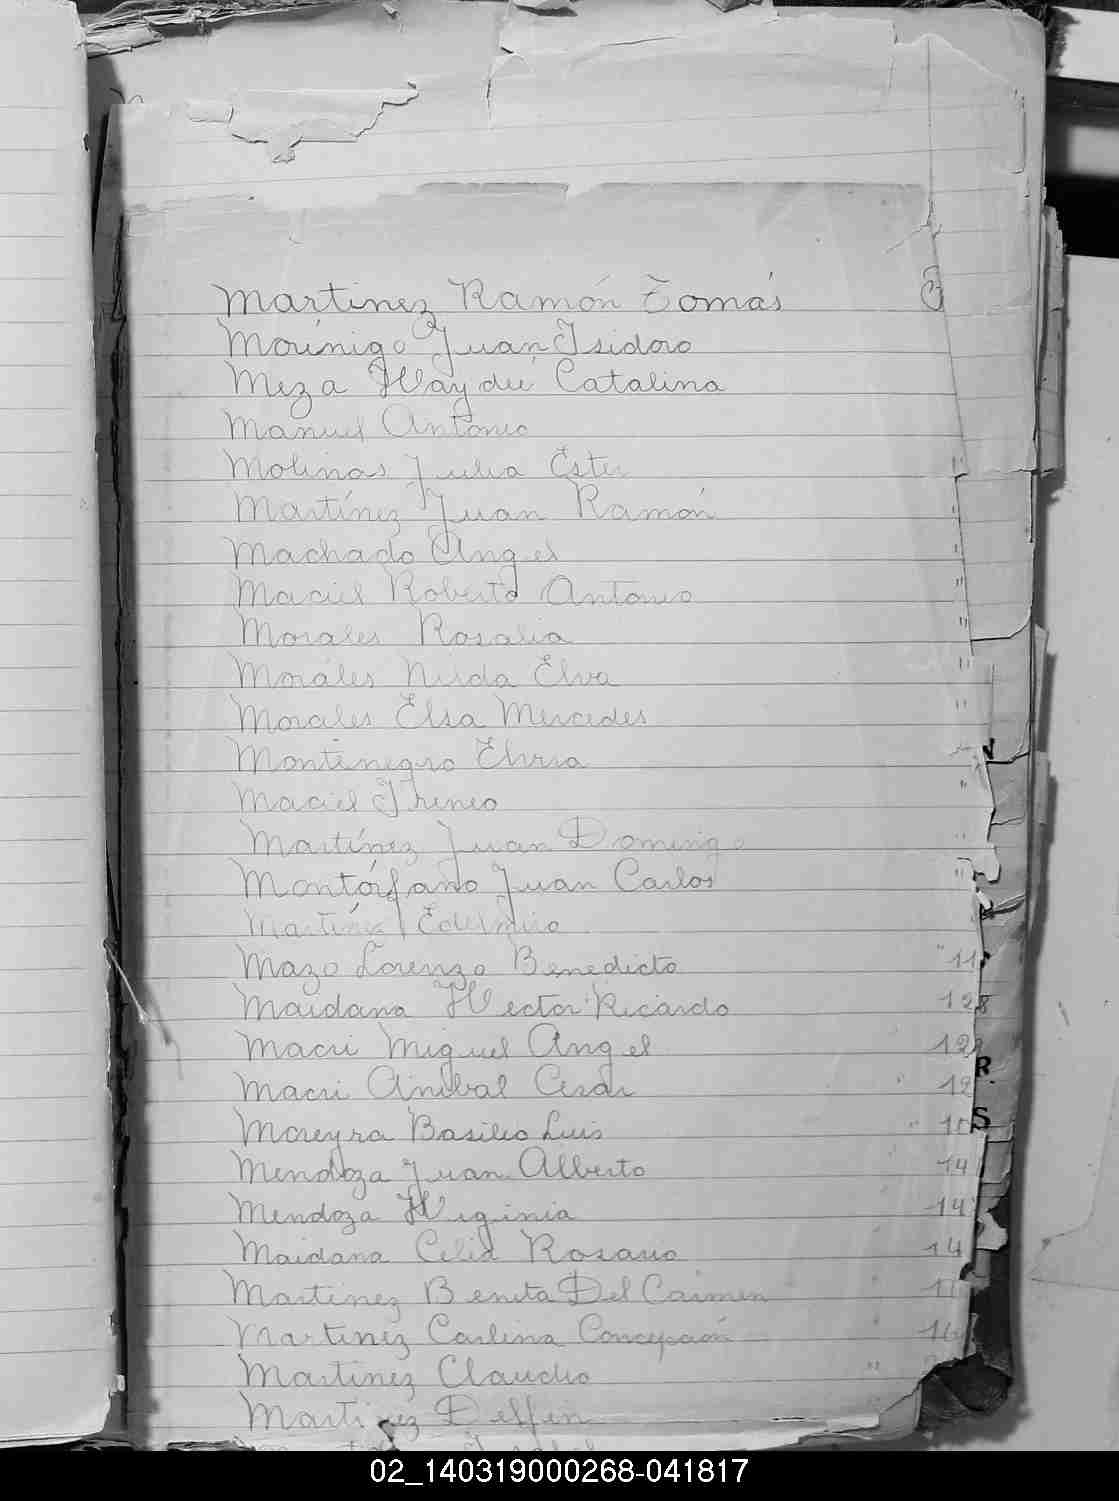 Martinez Ramón Tomás 3
Morínigo Juan Isidoro
Meza Haydeé Catalina
Manuel Antonio
Molinas Julia Ester "
Martínez Juan Ramón "
Machado Angel "
Maciel Roberto Antonio "
Morales Rosalia "
Morales Nilda Elva "
Morales Elsa Mercedes "
Montenegro Elvira
N
Maciel Ireneo "
Martínez Juan Domingo "
Montórfano Juan Carlos "
Martínez Edelmiro
Mazo Lorenzo Benedicto " 11
Maidana Hector Ricardo 128
Macri Miguel Angel 12
R
Macri Anibal Cesar " 12
S
Moreyra Basileo Luis "
Mendoza Juan Alberto 14
Mendoza Higinia " 14
Maidana Celia Rosario " 14
Martinez Benita Del Carmen "
Martinez Carlina Concepción " 16
Martinez Claudio "
Martinez Delfin
02_140319000268-041817